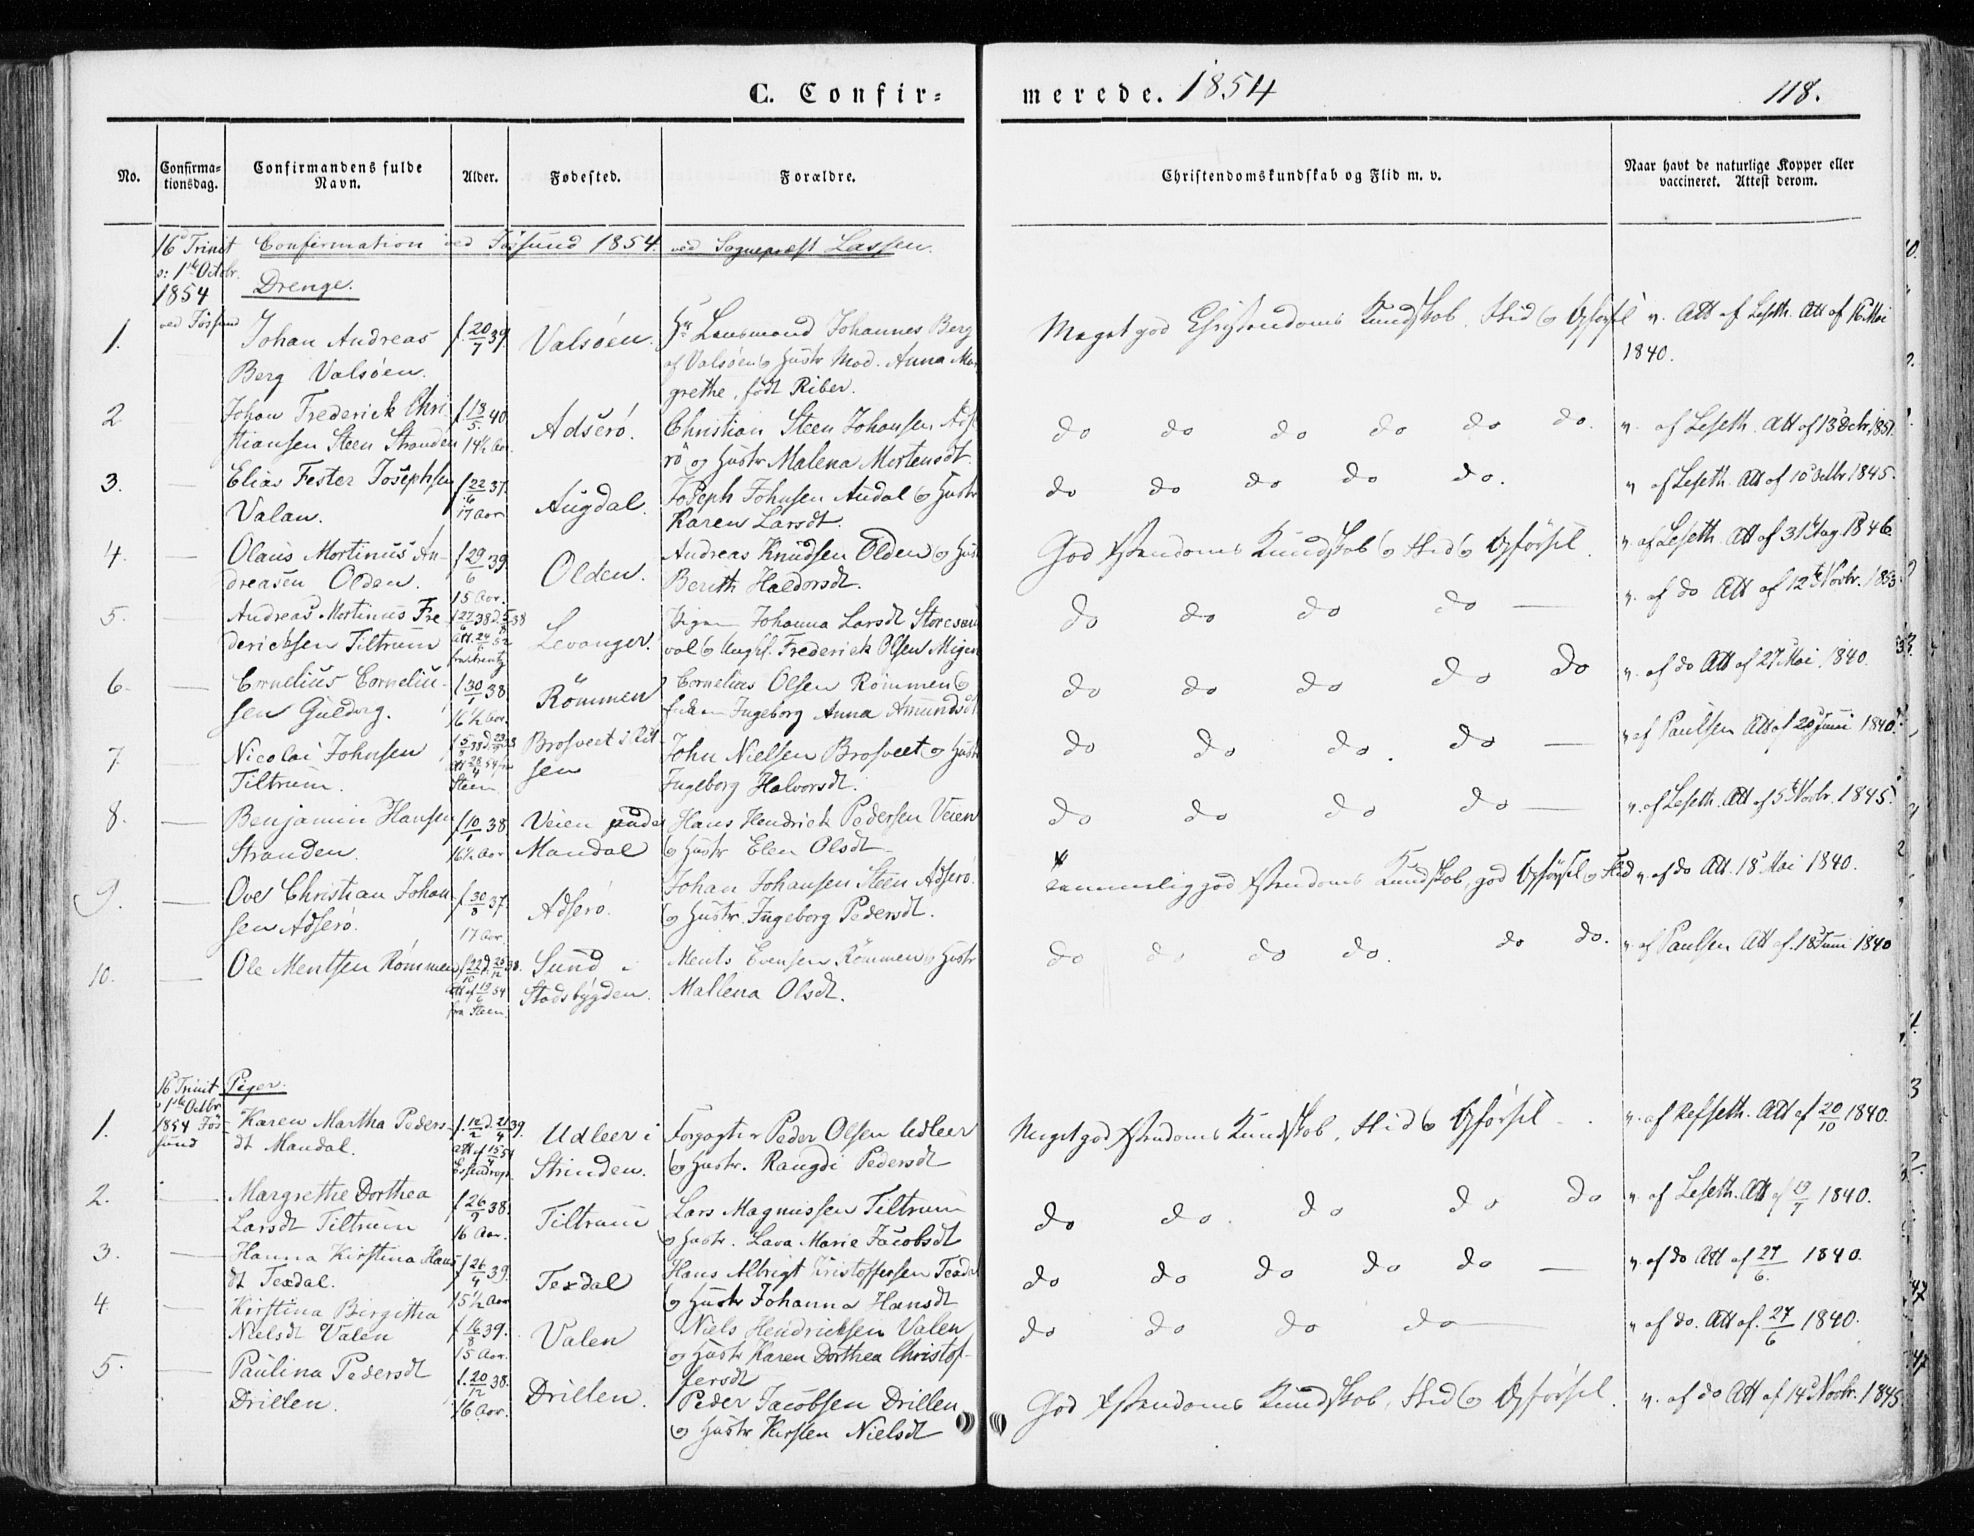 C. Confir=
merede. 1854
118.
No.
Confirma=
tionsdag.
Confirmandens fulde
Navn.
Alder.
Fødested.
Forældre.
Christendomskundskab og Flid m. v.
Naar havt de naturlige Kopper eller
vaccineret. Attest derom.
16 Trinit
1ste Octbr.
1854
Confirmation ved Fössund 1854. ved Sognepræst Lassen.
Drenge.
1. Johan Andreas
Berg Valsöen.
f. 20/7 39.
Valsöen.
Hr Lensmand Johannes Berg
af Valsöen og Hustr Mad. Anna Mar
grethe, født Riber.
Meget god Christendoms Kundskab, Flid og Opførsel
v. Att af Leseth. Att af 16 Mai
1840.
2 Johan Frederick Chri
stiansen Steen Stranden
f. 18/5 40.
14½ Aar.
Adserö.
Christian Steen Johansen Adse
rö og Hustr Malena Mortensdt.
do do do do do do.
v. af Leseth. Att af 13 Octr. 1851.
3. Elias Fester Josephsen
Valan.
f. 22/6 37.
17 Aar
Augdal.
Joseph Johnsen Audal og Hustr
Karen Larsdt.
do do do do do.
v af Leseth. Att af 10 1845.
4. Olaus Mortinus An-
dreasen Olden.
f. 29/6 39.
15 Aar.
Olden.
Andreas Knudsen Olden og Hust
Berith Haldorsdt.
God Xstendoms Kundskab og Flid og Opførsel.
v. af Leseth. Att af 31 Aug 1846.
5. Andreas Mortinus Fre
dericksen Tiltrum
Levanger.
Pigen Johanna Larsdt
val og Ungkl. Frederick Olsen
do do do do
v. af do Att af 12te Novbr. 1853.
6. Cornelius Corneliu-
sen Guldbrg.
f. 30/1 38.
16½ Aar.
Römmen
Cornelius Olsen Römmen og
Ingeborg Anna Amundsdt
do do do do do
v. af do Att af 27 Mai 1840.
7 Nicolai Johnsen
Tiltrum.
Brosveet i Ris
sen
John Nielsen Brosveet og Hustr
Ingeborg Halvorsdt.
do do do. do
v af Paulsen Att af 20 Juni 1840.
8. Benjamin Hansen
Stranden.
f. 10/1 38
16½ Aar
Veien under
Mandal
Hans Hendrick Pedersen Veien
og Hustr Elen Olsdt
do do do do
v. af Leseth. Att af 5te Novbr. 1845.
9. Ove Christian Johan
sen Adserö.
f. 30/8 37.
17 Aar.
Adserö.
Johan Johansen Steen Adserö.
og Hustr. Ingeborg Pedersdt.
temmelig god Xstendoms Kundskab, god Opførsel og Flid
v af do Att. 18 Mai 1840.
10. Ole Mentsen Römmen
Sund i
Stadsbygden.
Ments Evensen Römmen og Hustr
Mallena Olsdt.
do do do do. do do.
v af Paulsen Att af. 18 Juni 1840
16 Trinit
1ste Octbr
1854 Fös
sund
Piger.
1. Karen Martha Peders-
dt Mandal.
Udleer i
Strinden.
Peder Olsen Udleer
og Hustr. Rangdi Pedersdt
Meget god Xstendoms Kundskab, Flid og Opførsel
v. af Refseth. Att af 20/10 1840.
2. Margrethe Dorthea
Larsdt Tiltrum
f. 26/9 38.
16 Aar.
Tiltrum
Lars Magnussen Tiltrum
og Hustr. Lava Marie Jacobsdt
do do. do do do
v. af Leseth. Att af 19/7 1840.
3. Hanna Kirstina Hans
dt Texdal.
f. 26/4 39.
15½ Aar
Texdal
Hans Albrigt Cristoffersen Texdal
og Hustr Johanna Hansdt
do do do do do
v. af do Att af 27/6. 1840.
4. Kirstina Birgitha
Nielsdt Valen
f. 16/8 39.
15 Aar.
Valen
Niels Hendricksen Valen
og Hustr Karen Dorthea Christof-
fersdt
do do do do
v af do. Att af. 27/6 1840.
5. Paulina Pedersdt
Drillen.
f. 20/12 38.
16 Aar.
Drillen.
Peder Jacobsen Drillen
og Hustr Kirsten Nielsdt
God Xstendoms Kundskab, Flid og Opførsel.
v. af do Att af 14 Novbr. 1845